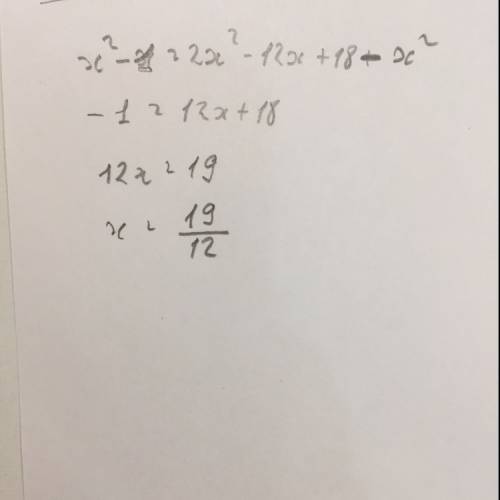 x² - 1 = 2x² - 12x + 18 - x²
- 1 = 12x + 18
12x = 19
x = 19/12